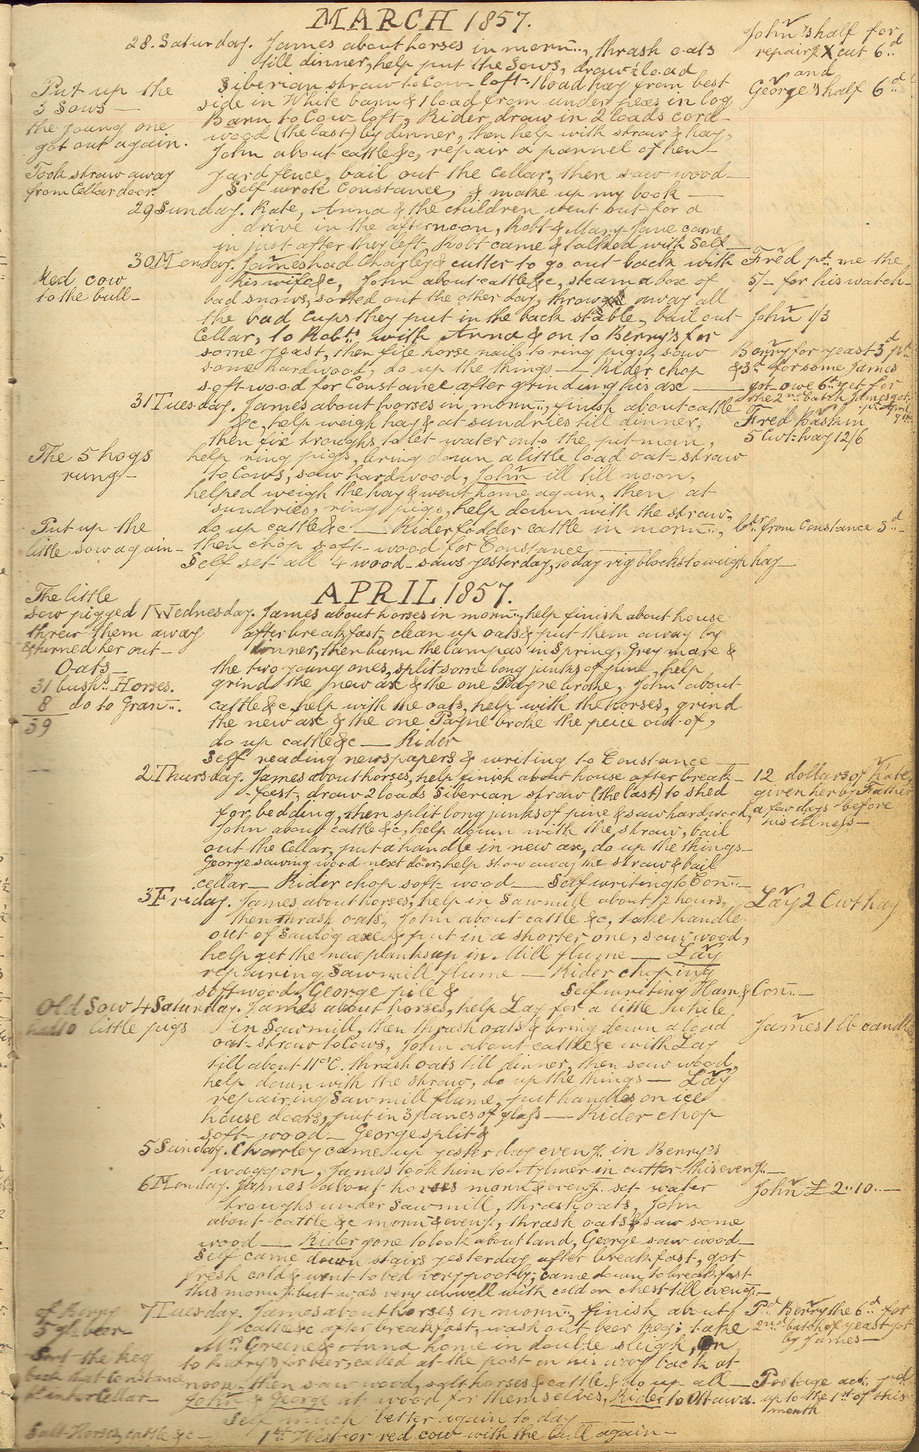 MARCH 1857.
28. Saturday. James about horses in morn:, thrash oats
till dinner, help put the Sows, draw 2 load
John's half for
repair'g X cut 6d
and
George's half 6d
Put up the
3 Sows
the young one
got out again.
Took straw away
from Cellar door.
Siberian straw to Cow-loft - 1 load hay from best
side in White barn & 1 load from under hens in log
Barn to Cow-loft, Rider, draw in 2 loads cord-
wood (the last) by dinner, then help with straw & hay,
John about cattle &c, repair a pannel of hen
yard fence, bail out the Cellar, then saw wood
Self wrote Constance, & make up my book
29 Sunday. Kate, Anna & the children went out for a
drive in the afternoon, Robt & Mary Jane came
in just after they left, Robt came & talked with Self
30 Monday. James had Charley & cutter to go out back with
his wife &c, John about cattle &c, steam a box of
bad snows, sorted out the other day, throw away all
the bad cups they put in the back stable, bail out
Cellar, to Robt: with Anna & on to Berry's for
some yeast, then file horse nails to ring pigs, saw
some hardwood, do up the things - Rider chop
soft-wood for Constance after grinding his axe
Red cow
to the bull
Fred pd. me the
5/- for his watch
John 1/3
Berry for yeast 3d pd.
& 3d for some James
got - owe 6d yet for
the 2nd batch James got
31 Tuesday. James about horses in morn:, finish about cattle
&c, help weigh hay & at sundries till dinner,
then fix troughs to let water onto the put-man,
help ring pigs, bring down a little load oat-straw
to Cows, saw hardwood, John ill till noon,
helped weigh the hay & went home again, then at
sundries, ring pigs, help down with the straw,
do up cattle &c - Rider fodder cattle in morn:,
then chop soft-wood for Constance
Self set all 4 wood-saws yesterday, today rig blocks to weigh hay
Fred Baskin
5 Cwt: hay 12/6
The 5 hogs
rung
Put up the
little sow again
ltr from Constance 3d
APRIL 1857.
The little
sow pigged
threw them away
& turned her out
Oats
31 bush: Horses.
8 do to Gran:.
39
1 Wednesday. James about horses in morn:, help finish about house
after breakfast - clean up oats & put them away by
dinner, then burn the lampas in Spring, Grey mare &
the two young ones, split some long junks of pine, help
grind the new axe & the one Payne broke, John about
cattle &c, help with the oats, help with the horses, grind
the new axe & the one Payne broke the peice out of,
do up cattle &c - Rider
Self reading newspapers & writing to Constance
2 Thursday. James about horses, help finish about house after break-
fast, draw 2 loads Siberian straw (the last) to shed
for bedding, then split long junks of pine & saw hardwood,
John about cattle &c, help down with the straw, bail
out the Cellar, put a handle in new axe, do up the things
George sawing wood next door, help stow away the straw & bail
cellar - Rider chop soft-wood - Self writing to Con:
12 dollars of Kate,
given her by Father
a few days before
his illness
3 Friday. James about horses, help in Sawmill about 2 hours,
then thrash oats, John about cattle &c, take handle
out of Sawlog axe & put in a shorter one, saw wood,
help get the new planks up in Mill flume - Lay
repairing Sawmill flume - Rider choping
softwood, George pile & Self writing Ham & Con:
Lay 2 Cwt hay
Old Sow
had 10 little pigs
4 Saturday. James about horses, help Lay for a little while
in Sawmill, then thrash oats & bring down a load
oat-straw to Cows, John about cattle &c with Lay
till about 11 oC. thrash oats till dinner, then saw wood,
help down with the straw, do up the things - Lay
repairing Sawmill flume, put handles on ice
house doors, put in 3 panes of glass - Rider chop
soft wood - George split &
James 1 lb candle
5 Sunday. Charley came up yesterday eveng. in Berry's
waggon, James took him to Aylmer in cutter this eveng.
6 Monday. James about horses morn: & eveng. set water
troughs under Sawmill, thrash oats, John
about cattle &c morn: & eveng., thrash oats & saw some
wood - Rider gone to look about land, George saw wood
Self came down stairs yesterday after breakfast, got
fresh cold & went to bed very poorly, came down to breakfast
this morng. but was very unwell with cold on chest till eveng.
John £ 2..10..
7 Tuesday. James about horses in morn:, finish about
cattle &c after breakfast, wash out beer keg, take
Mrs Greene & Anna home in double sleigh, on
to for beer, called at the post on his way back at
noon, then saw wood, salt horses & cattle & do up all
John & George at wood for themselves, Rider to Ottawa.
Self much better again to day
1st West or red cow with the bull again
of Berry
5 gls beer
Sent the keg
back that Constance
sent in her Cellar
Salt Horses, cattle &c
Pd. Berry the 6d for
2nd batch of yeast got
by James
Postage act. pd.
up to the 1st of this
month